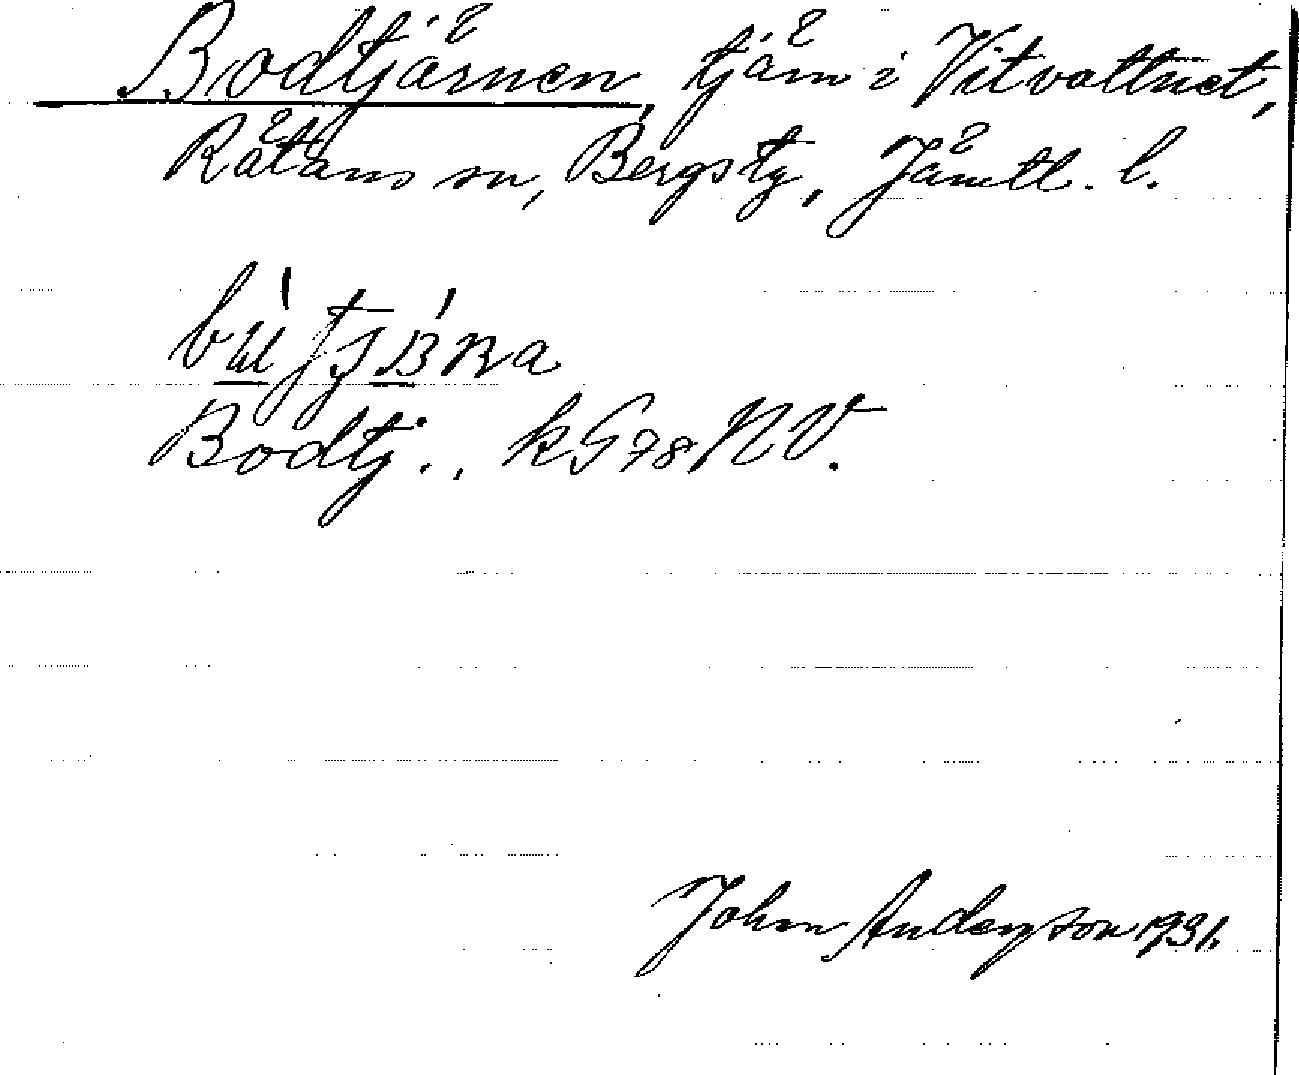 Bodtjärnen, tjärn i Vitvattnet,
Rätans sn, Bergs tg, Jämtl. l.
Bodtj., kG 78 NV.
John Anderzson 1931.